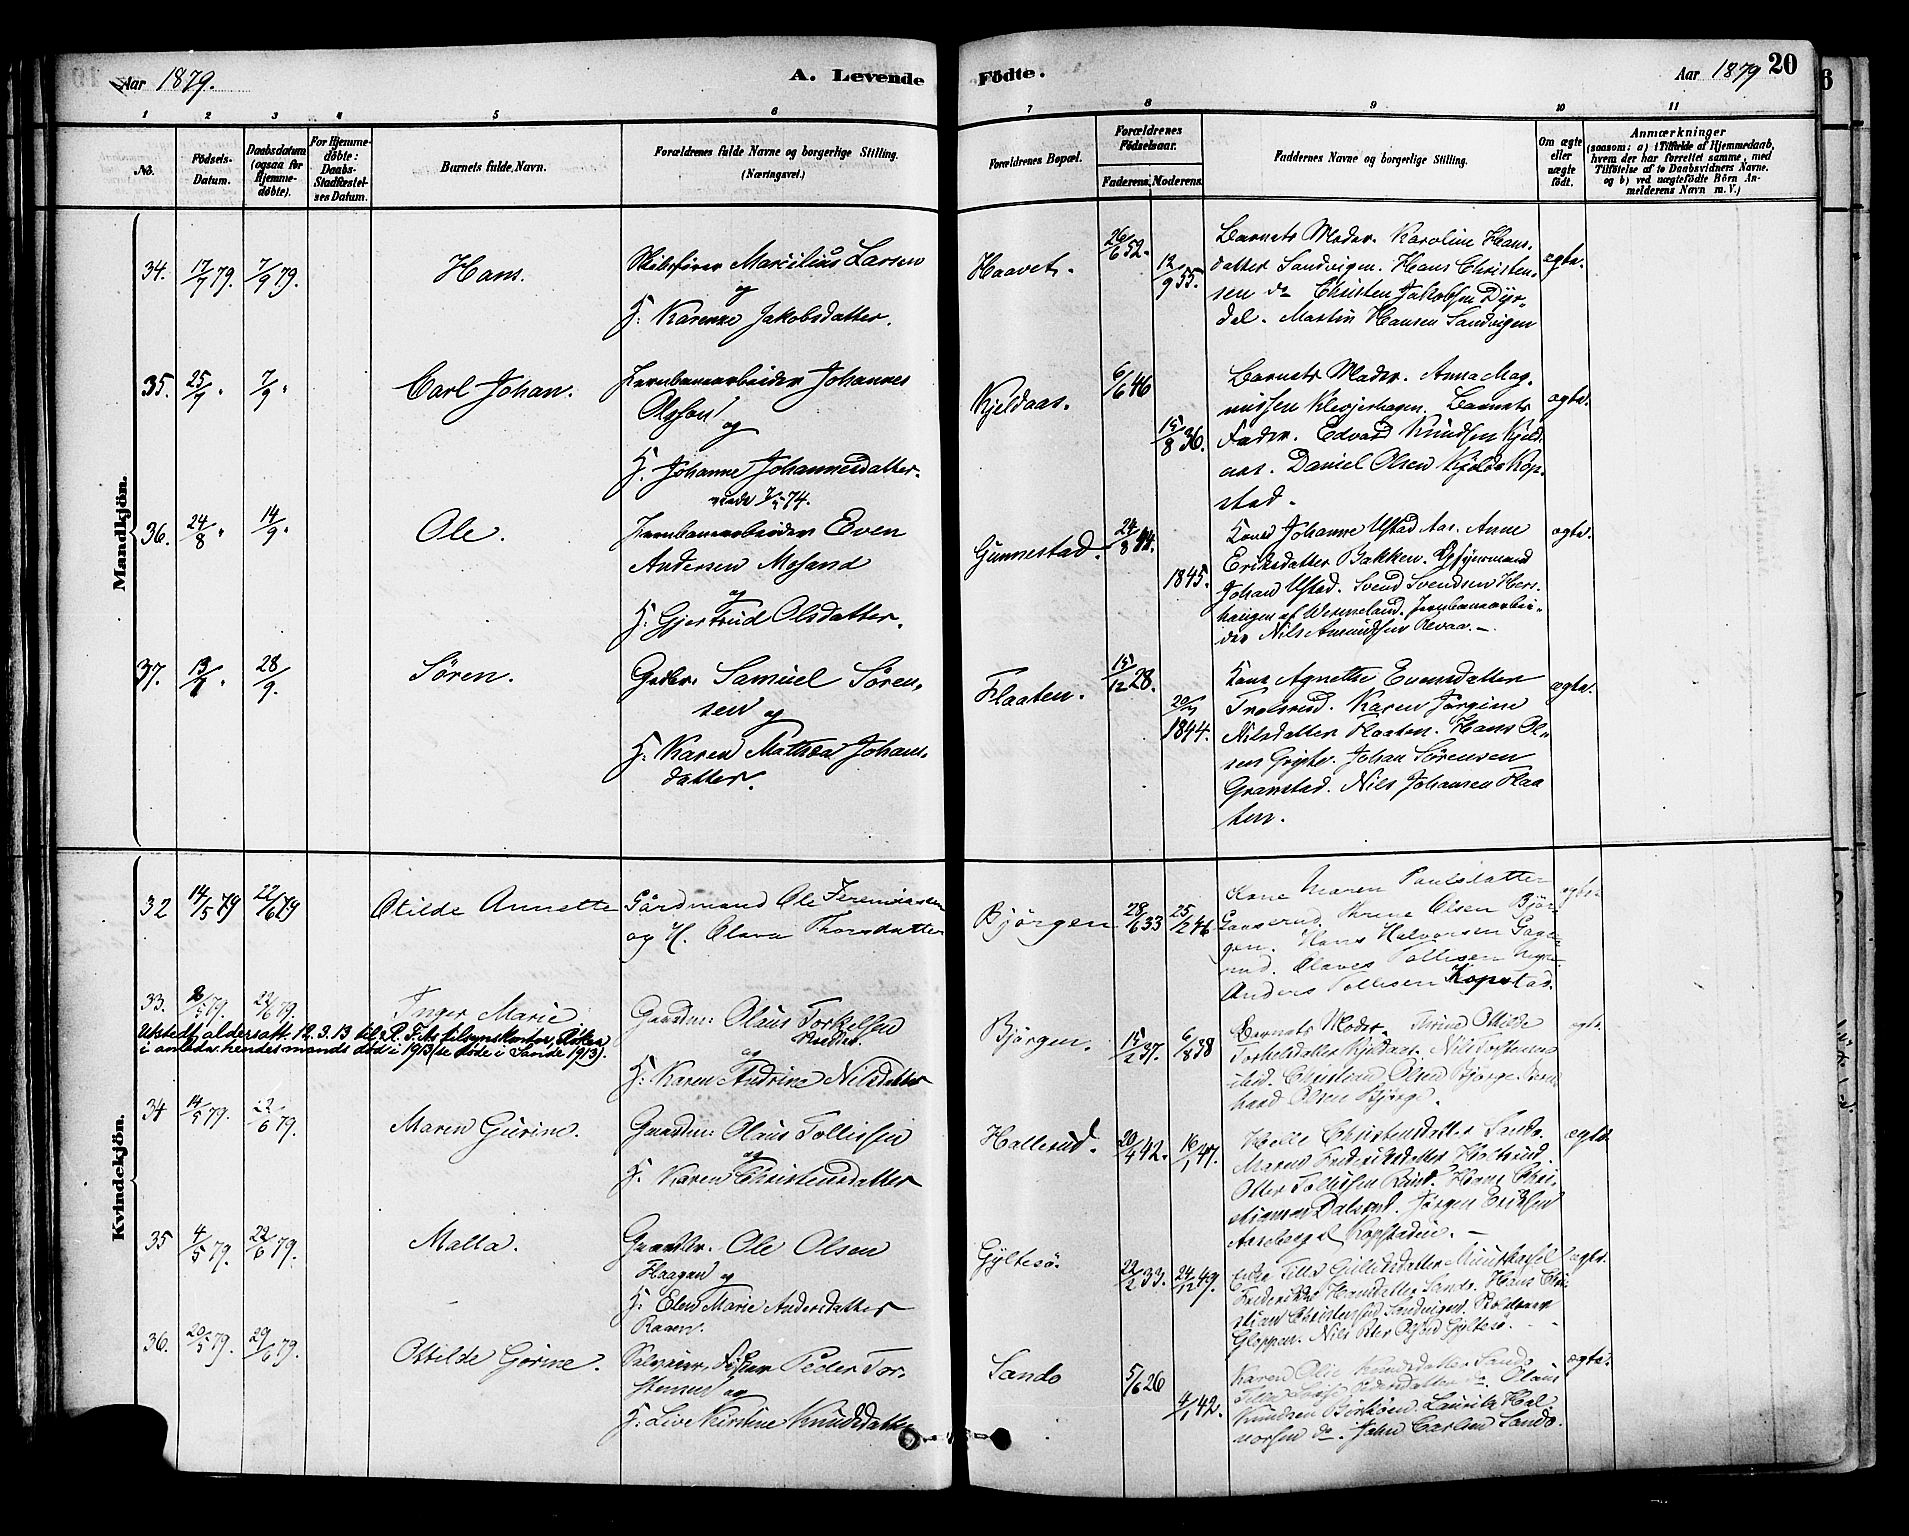 Aar 1879.
A. Levende
Födte.
Aar 1879
20
1 2 3 4 5 6
7 8 9 10 11
No.
Födsels-
Datum.
Daabsdatum
(ogsaa for
Hjemme-
döbte).
For Hjemme-
döbte:
Daabs-
Stadfæstel-
ses Datum.
Barnets fulde Navn.
Forældrenes fulde Navne og borgerlige Stilling.
(Næringsvei.)
Forældrenes Bopæl.
Forældrenes
Födselsaar.
Faderens. Moderens.
Faddernes Navne og borgerlige Stilling.
Om ægte
eller
uægte
födt.
Anmærkninger
(saasom: a) i Tilfælde af Hjemmedaab,
hvem der har forrettet samme, med
Tilföielse af to Daabsvidners Navne.
og b) ved uægtefödte Börn An-
melderens Navn m. V.)
Mandkjön.
34. 17/7 79. 7/9 79.
Hans.
Skibsfører Marcilius Larsen
og
H. Karenze Jakobsdatter.
Haavet.
26/6 52.
12/9 55.
Barnets Moder. Karoline Hans-
datter Sandvigen. Hans Christen-
sen do Christen Jakobsen Dyr-
dal. Martin Hansen Sandvigen
ægte.
35. 25/7 " 7/9 "
Carl Johan.
Jernbanearbeider Johannes
Olsson
og
H. Johanne Johannesdatter.
Kjeldaas.
6/6 46
15/8 36.
Barnets Moder. Anna Mag-
nussen Klevjerhagen. Barnets
Fader. Edvard Knudsen Kjeld-
aas. Daniel Olsen Kjelds Kop-
stad.
ægte.
36. 24/8 " 14/9 "
Ole.
Jernbanearbeider Even
Andersen Mosand
og
H. Gjertrud Olsdatter.
Gunnestad.
24/8 44.
1845.
Kone Johanne Ustad Aas. Anne
Eriksdatter Bakken. Opsynsmand
Johan Ustad. Svend Svendsen Hers-
haugen af Wermeland. Jernbanearbei-
der Nils Amundsen Revaa. —
ægte.
37. 13/7 " 28/9 .
Søren.
Gaardbr. Samuel Søren-
sen og
H. Karen Mathea Johans-
datter.
Flaaten.
15/12 28.
1844.
Kone Agnethe Evensdatter
Trolsrud. Karen Jørgine
Nilsdatter Flaaten. Hans Ol-
sen Grytte. Johan Sørensen
Granstad. Nils Johansen Flaa-
ten.
ægte.
Kvindekjön.
32 14/5 79 22/6 79
Otilde Annette
Gårdmand Ole Jeremiassen
og H. Olava Thorsdatter
Bjørgen
28/6 33
25/2 46.
Kone Maren Paulsdatter
Gaaserud. Thrine Olsen Bjør-
gen. Hans Halvorsen Gaase-
rud. Olaves Tollesen
Anders Tollesen Kopstad.
ægte
33. 79. 22/6 79.
Inger Marie
Utstedt aldersatt. 12.3.13 til R. F. A's tilsynskontor, Asker
i anledn. hendes mands død i 1913 (se døde i Sande 1913).
Gaardm: Olaus Torkelsen
og
H. Karen Andrine Nilsdatter
Bjørgen.
15/2 37.
6/8 38
Barnets Moder. Trine Otilde
Torkelsdatter Kjeldaas. Nils Torstensen
ibid. Christian Olsen Bjørge. Bern-
hard Olsen Bjørge.
ægte
34 14/5 79. 22/6 79.
Maren Gurine.
Gaardm: Olaus Tollissen
og
H. Karen Christensdatter
Hallerud.
20/4 42.
16/1 47.
Helle Christensdatter Sando.
Maren Frederiksdatter Holtrud.
Otter Tollissen Rud. Hans Chri-
stiansen Dalsrud. Jørgen Eriksen
Aarsberg Kopstadeie. —
ægte
35 4/5 79. 22/6 79.
Malla.
Gaardbr. Ole Olsen
Haagan og
H. Elen Marie Andersdatter
Raaen.
Gyltesø.
22/2 33.
24/12 49.
Enke Tilla Gulliksdatter
Frederikke Hansdatter Sando. Hans Chri-
stian Christensen Sandvigen.
Gloppen. Nils Peter Olsen Gyltesø.
ægte.
36. 20/5 79. 29/6 79.
Ottilde Gorine.
Selveier, Fisker Peder Tor-
stensen og
H. Live Kirstine Knudsdatter
Sando
5/6 26
4/1 42.
Karen Olie Knudsdatter Sando
Olaus
Knudsen Bjerkøen. Laurits Hal-
vorsen do. John Carlsen Sando.
ægte.